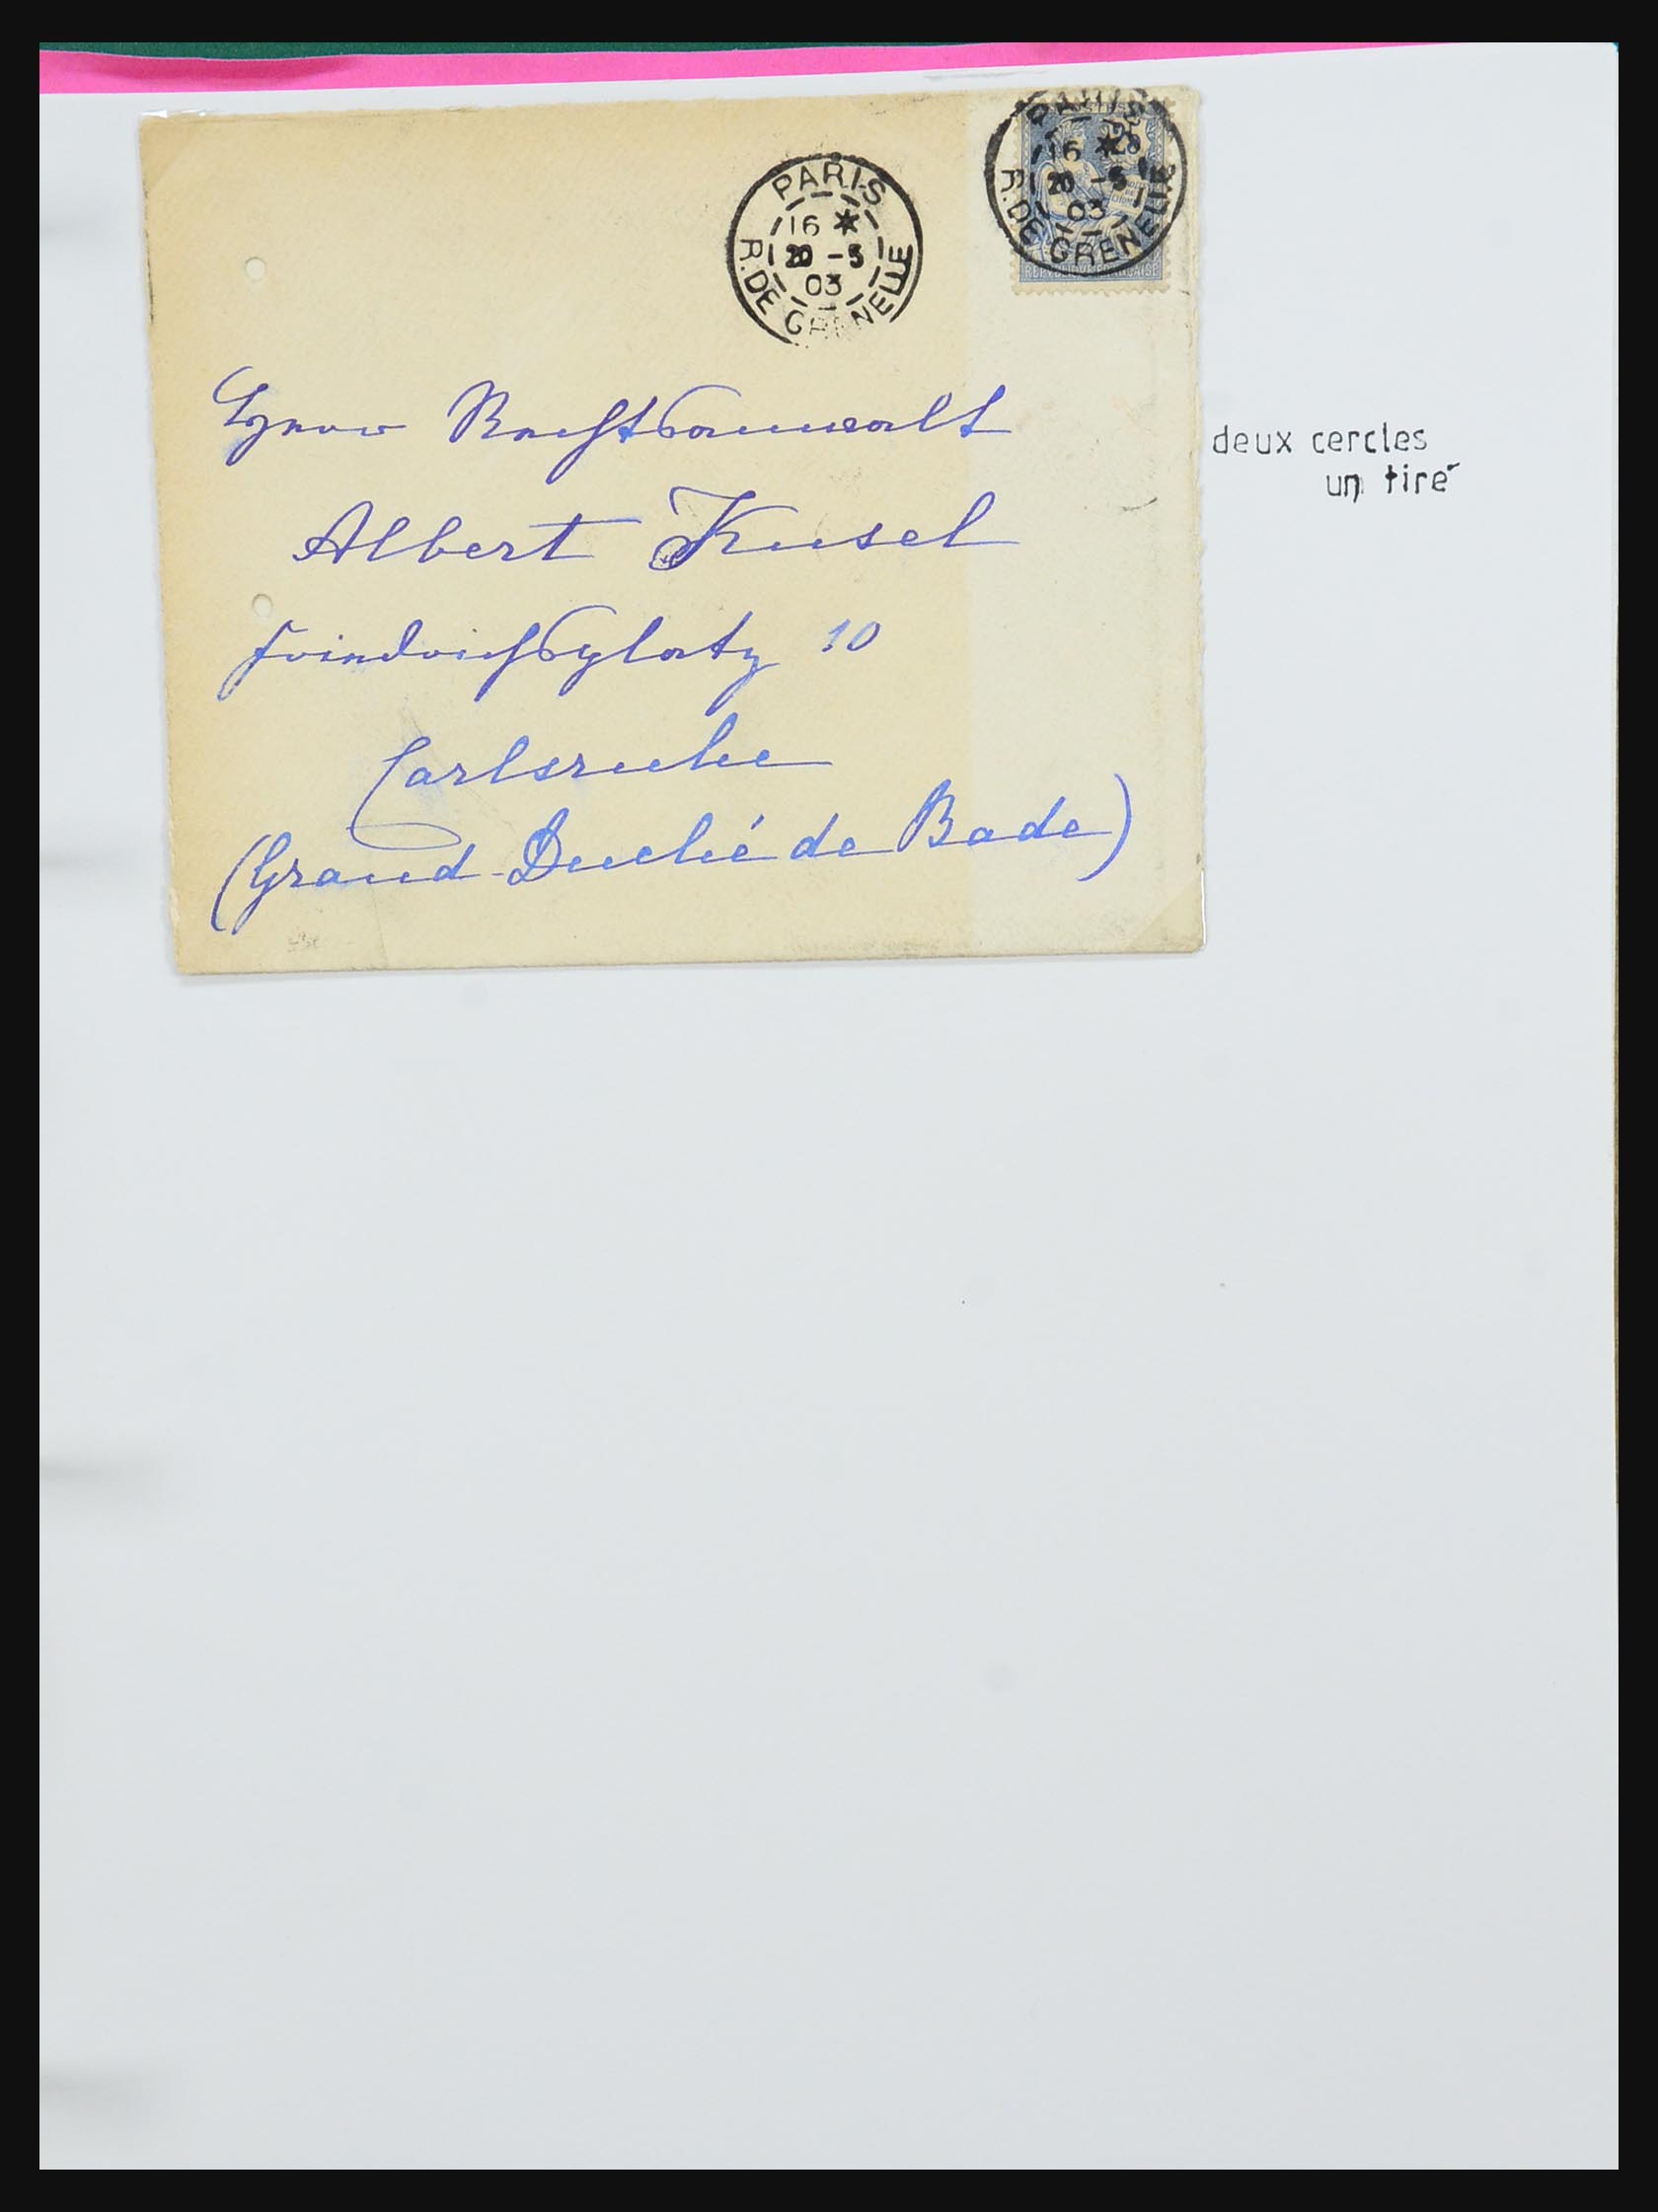 PARIS
16 *
20 -5
03
R. DE GRENELLE
PARIS
25
16 *
20 -5
03
R. DE GRENELLE
REPUBLIQUE FRANÇAISE
Herrn Rechtsanwalt
Albert Kusel
Friedrichsplatz 10
Carlsruhe
(Grand-Duché de Bade)
deux cercles
un tiré